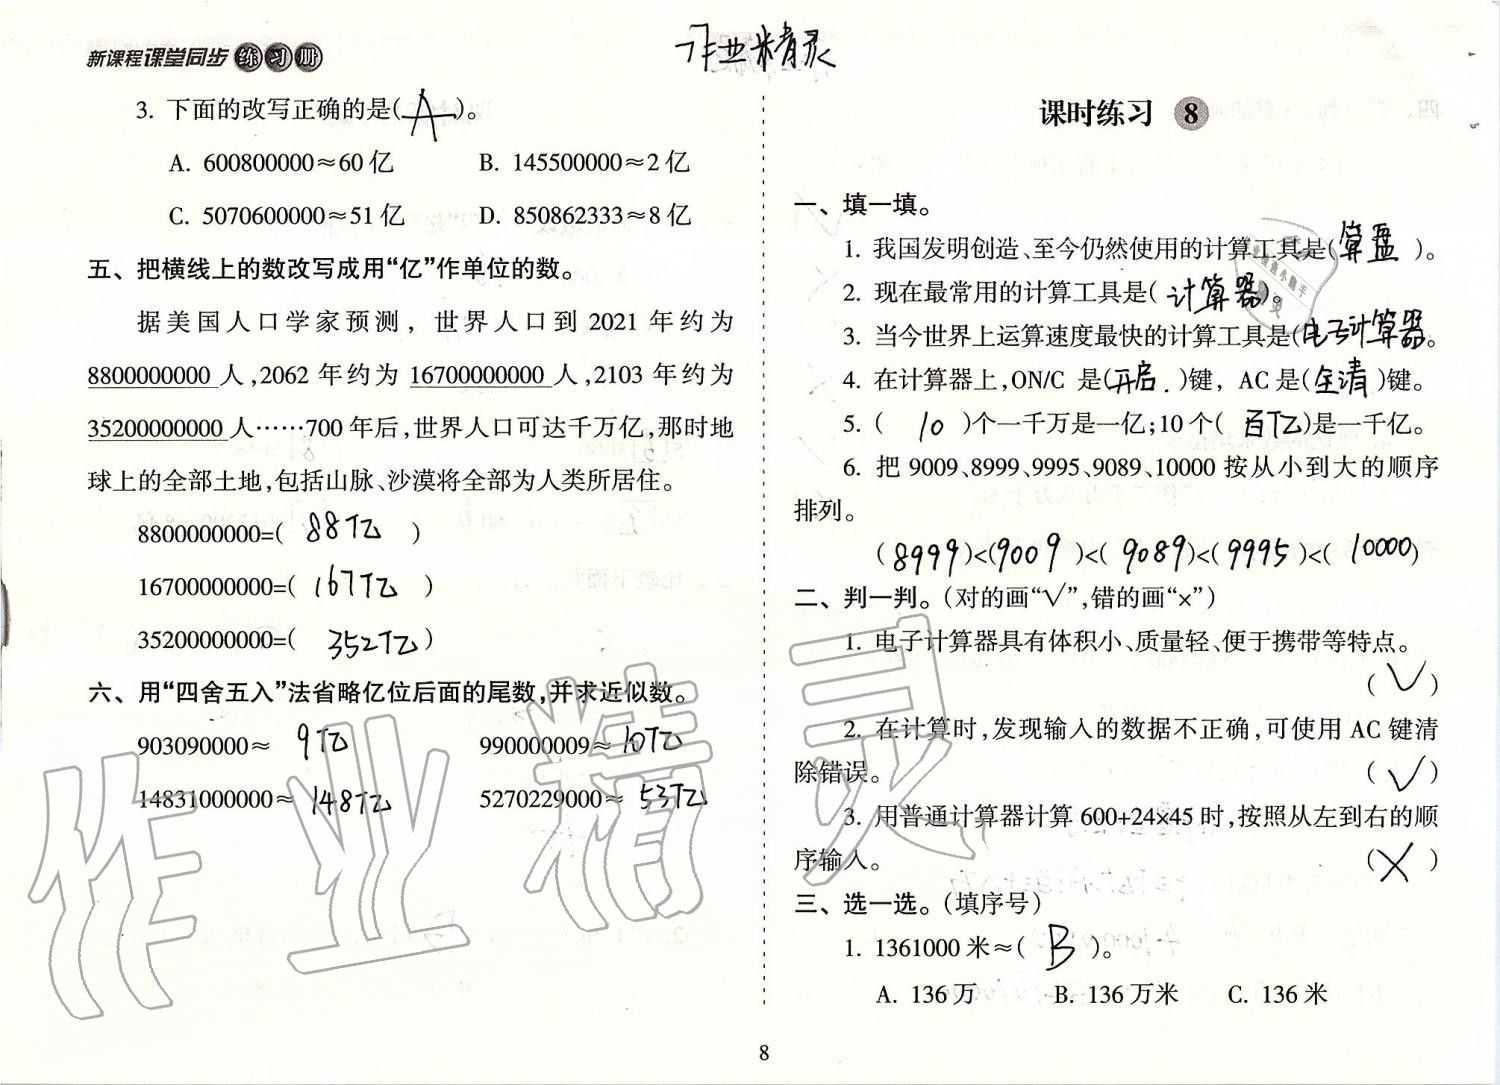 新课程课堂同步练习册
作业精灵
3. 下面的改写正确的是(A)。
A. 600800000≈60亿 B. 145500000≈2亿
C. 5070600000≈51亿 D. 850862333≈8亿
五、把横线上的数改写成用“亿”作单位的数。
据美国人口学家预测，世界人口到2021年约为
8800000000人,2062年约为16700000000人,2103年约为
35200000000人……700年后,世界人口可达千万亿,那时地
球上的全部土地,包括山脉、沙漠将全部为人类所居住。
8800000000=( 88亿 )
16700000000=( 167亿 )
35200000000=( 352亿 )
六、用“四舍五入”法省略亿位后面的尾数,并求近似数。
903090000≈ 9亿 990000009≈ 10亿
14831000000≈ 148亿 5270229000≈ 53亿
课时练习 8
一、填一填。
1. 我国发明创造、至今仍然使用的计算工具是(算盘)。
2. 现在最常用的计算工具是(计算器)。
3. 当今世界上运算速度最快的计算工具是(电子计算器。
4. 在计算器上,ON/C 是(开启.)键，AC是(全清)键。
5. ( 10 )个一千万是一亿;10个( 百亿)是一千亿。
6. 把 9009、8999、9995、9089、10000 按从小到大的顺序
排列。
(8999)<(9009)<(9089)<(9995)<(10000)
二、判一判。(对的画“√”,错的画“×”)
1. 电子计算器具有体积小、质量轻、便于携带等特点。
(√)
2. 在计算时,发现输入的数据不正确,可使用AC键清
除错误。 (√)
3. 用普通计算器计算600+24×45时,按照从左到右的顺
序输入。 (×)
三、选一选。(填序号)
1. 1361000米≈( B )。
A. 136万 B. 136万米 C. 136米
8
作业精灵